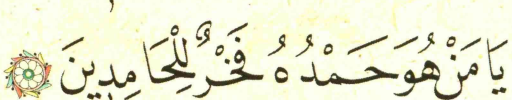 يَا مَنْ هُوَ حَمْدُهُ فَخْرٌ لِلْحَامِدِينَ